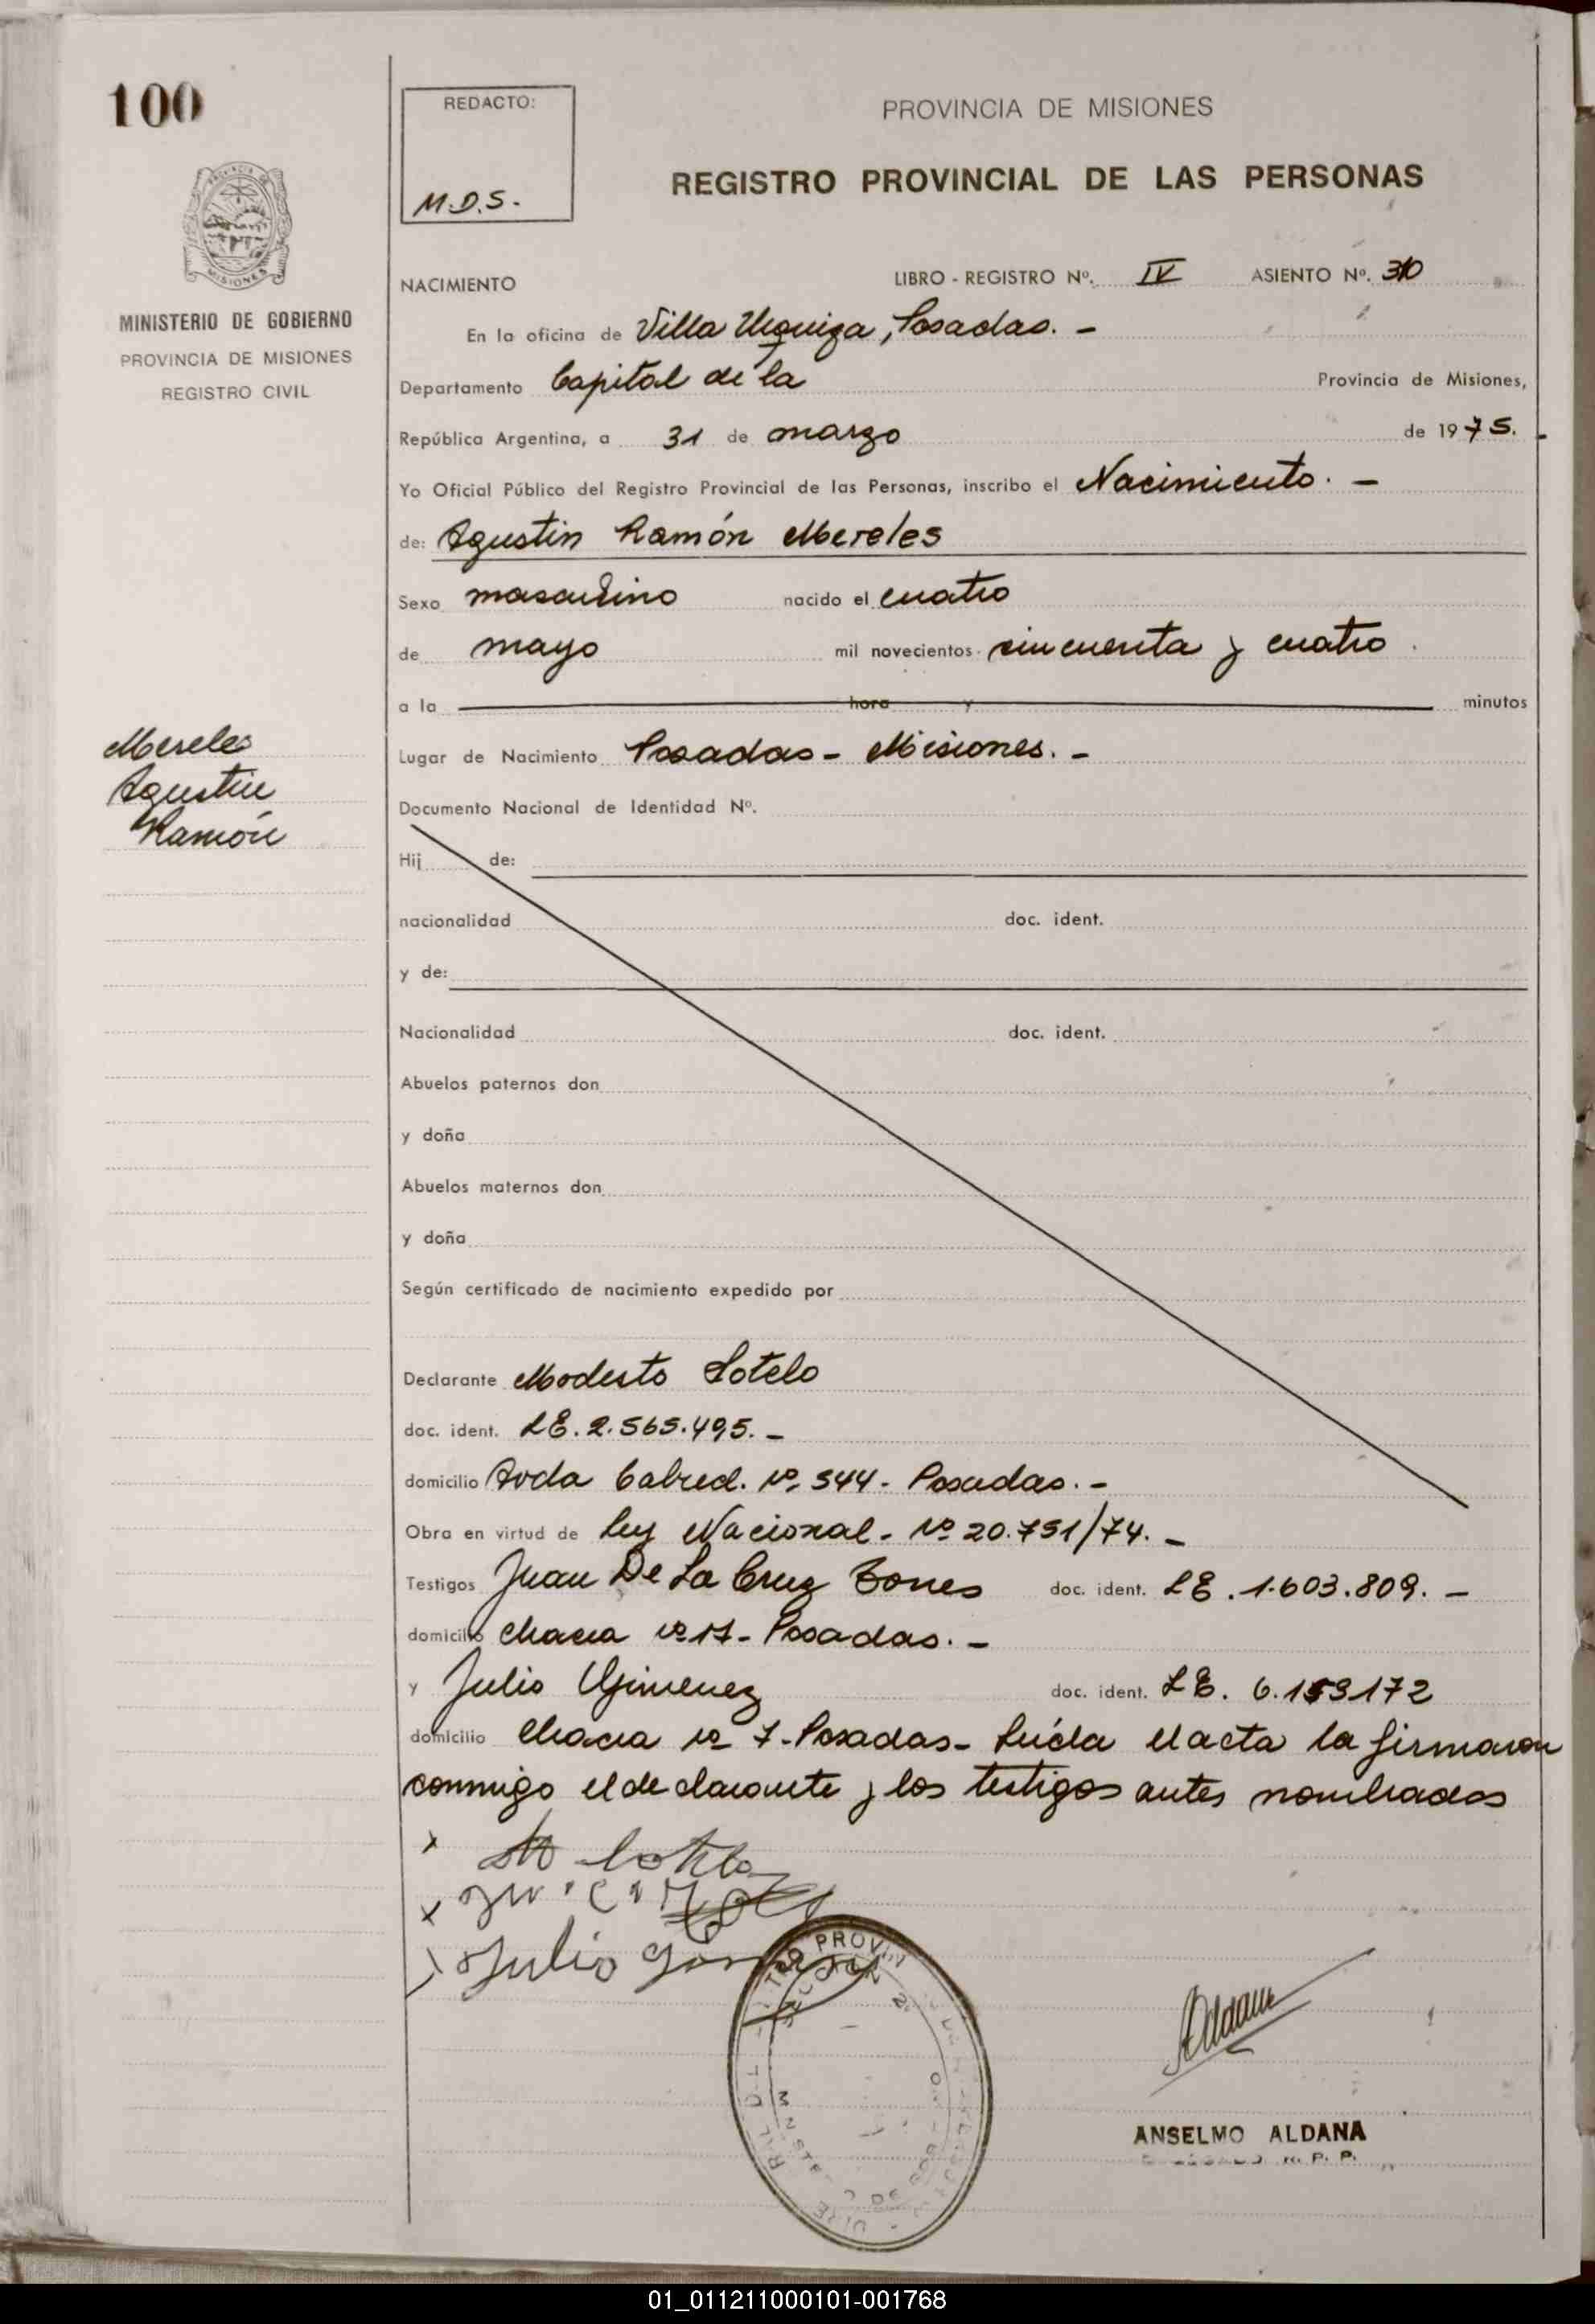 100
REDACTO:
M.D.S.
PROVINCIA DE MISIONES
REGISTRO PROVINCIAL DE LAS PERSONAS
MINISTERIO DE GOBIERNO
PROVINCIA DE MISIONES
REGISTRO CIVIL
NACIMIENTO LIBRO - REGISTRO Nº. IV ASIENTO Nº. 310
En la oficina de Villa Urquiza, Posadas. -
Departamento Capital de la Provincia de Misiones,
República Argentina, a 31 de marzo de 1975. -
Yo Oficial Público del Registro Provincial de las Personas, inscribo el Nacimiento. -
de: Agustin Ramón Mereles
Sexo masculino nacido el cuatro
de mayo mil novecientos cincuenta y cuatro.
a la hora y minutos
Mereles
Agustin
Ramón
Lugar de Nacimiento Posadas - Misiones. -
Documento Nacional de Identidad Nº.
Hij de:
nacionalidad doc. ident.
y de:
Nacionalidad doc. ident.
Abuelos paternos don
y doña
Abuelos maternos don
y doña
Según certificado de nacimiento expedido por
Declarante Modesto Sotelo
doc. ident. LE. 2.565.495. -
domicilio Avda Cabred. Nº 544 - Posadas. -
Obra en virtud de Ley Nacional - Nº 20.751/74. -
Testigos Juan De La Cruz doc. ident. LE. 1.603.809. -
domicilio Chacra Nº 17 - Posadas. -
y Julio Gimenez doc. ident. LE. 6.153172
domicilio Chacra Nº 7 - Posadas - Leída el acta la firmaron
conmigo el declarante y los testigos antes nombrados
Julio
ANSELMO ALDANA
01_011211000101-001768